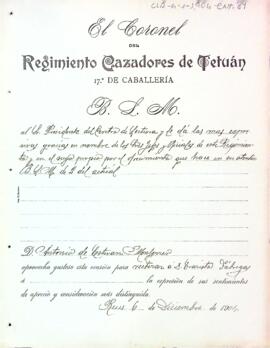 El Coronel
DEL
Regimiento Cazadores de Tetuán
17.º DE CABALLERÍA
B. L. M.
al Sr. Presidente del Centro de Lectura y le dá las mas expre
sivas gracias en nombre de los Sres Jefes y Oficiales de este Regimien
to, y en el suyo propio por el ofrecimiento que hace en su atento
B. L. M. de 2 del actual
D. Antonio de
aprovecha gustoso esta ocasión para reiterar á D. Evaristo Fábregas
á la expresión de sus sentimientos
de aprecio y consideración más distinguida.
Reus, 6 de Diciembre de 190